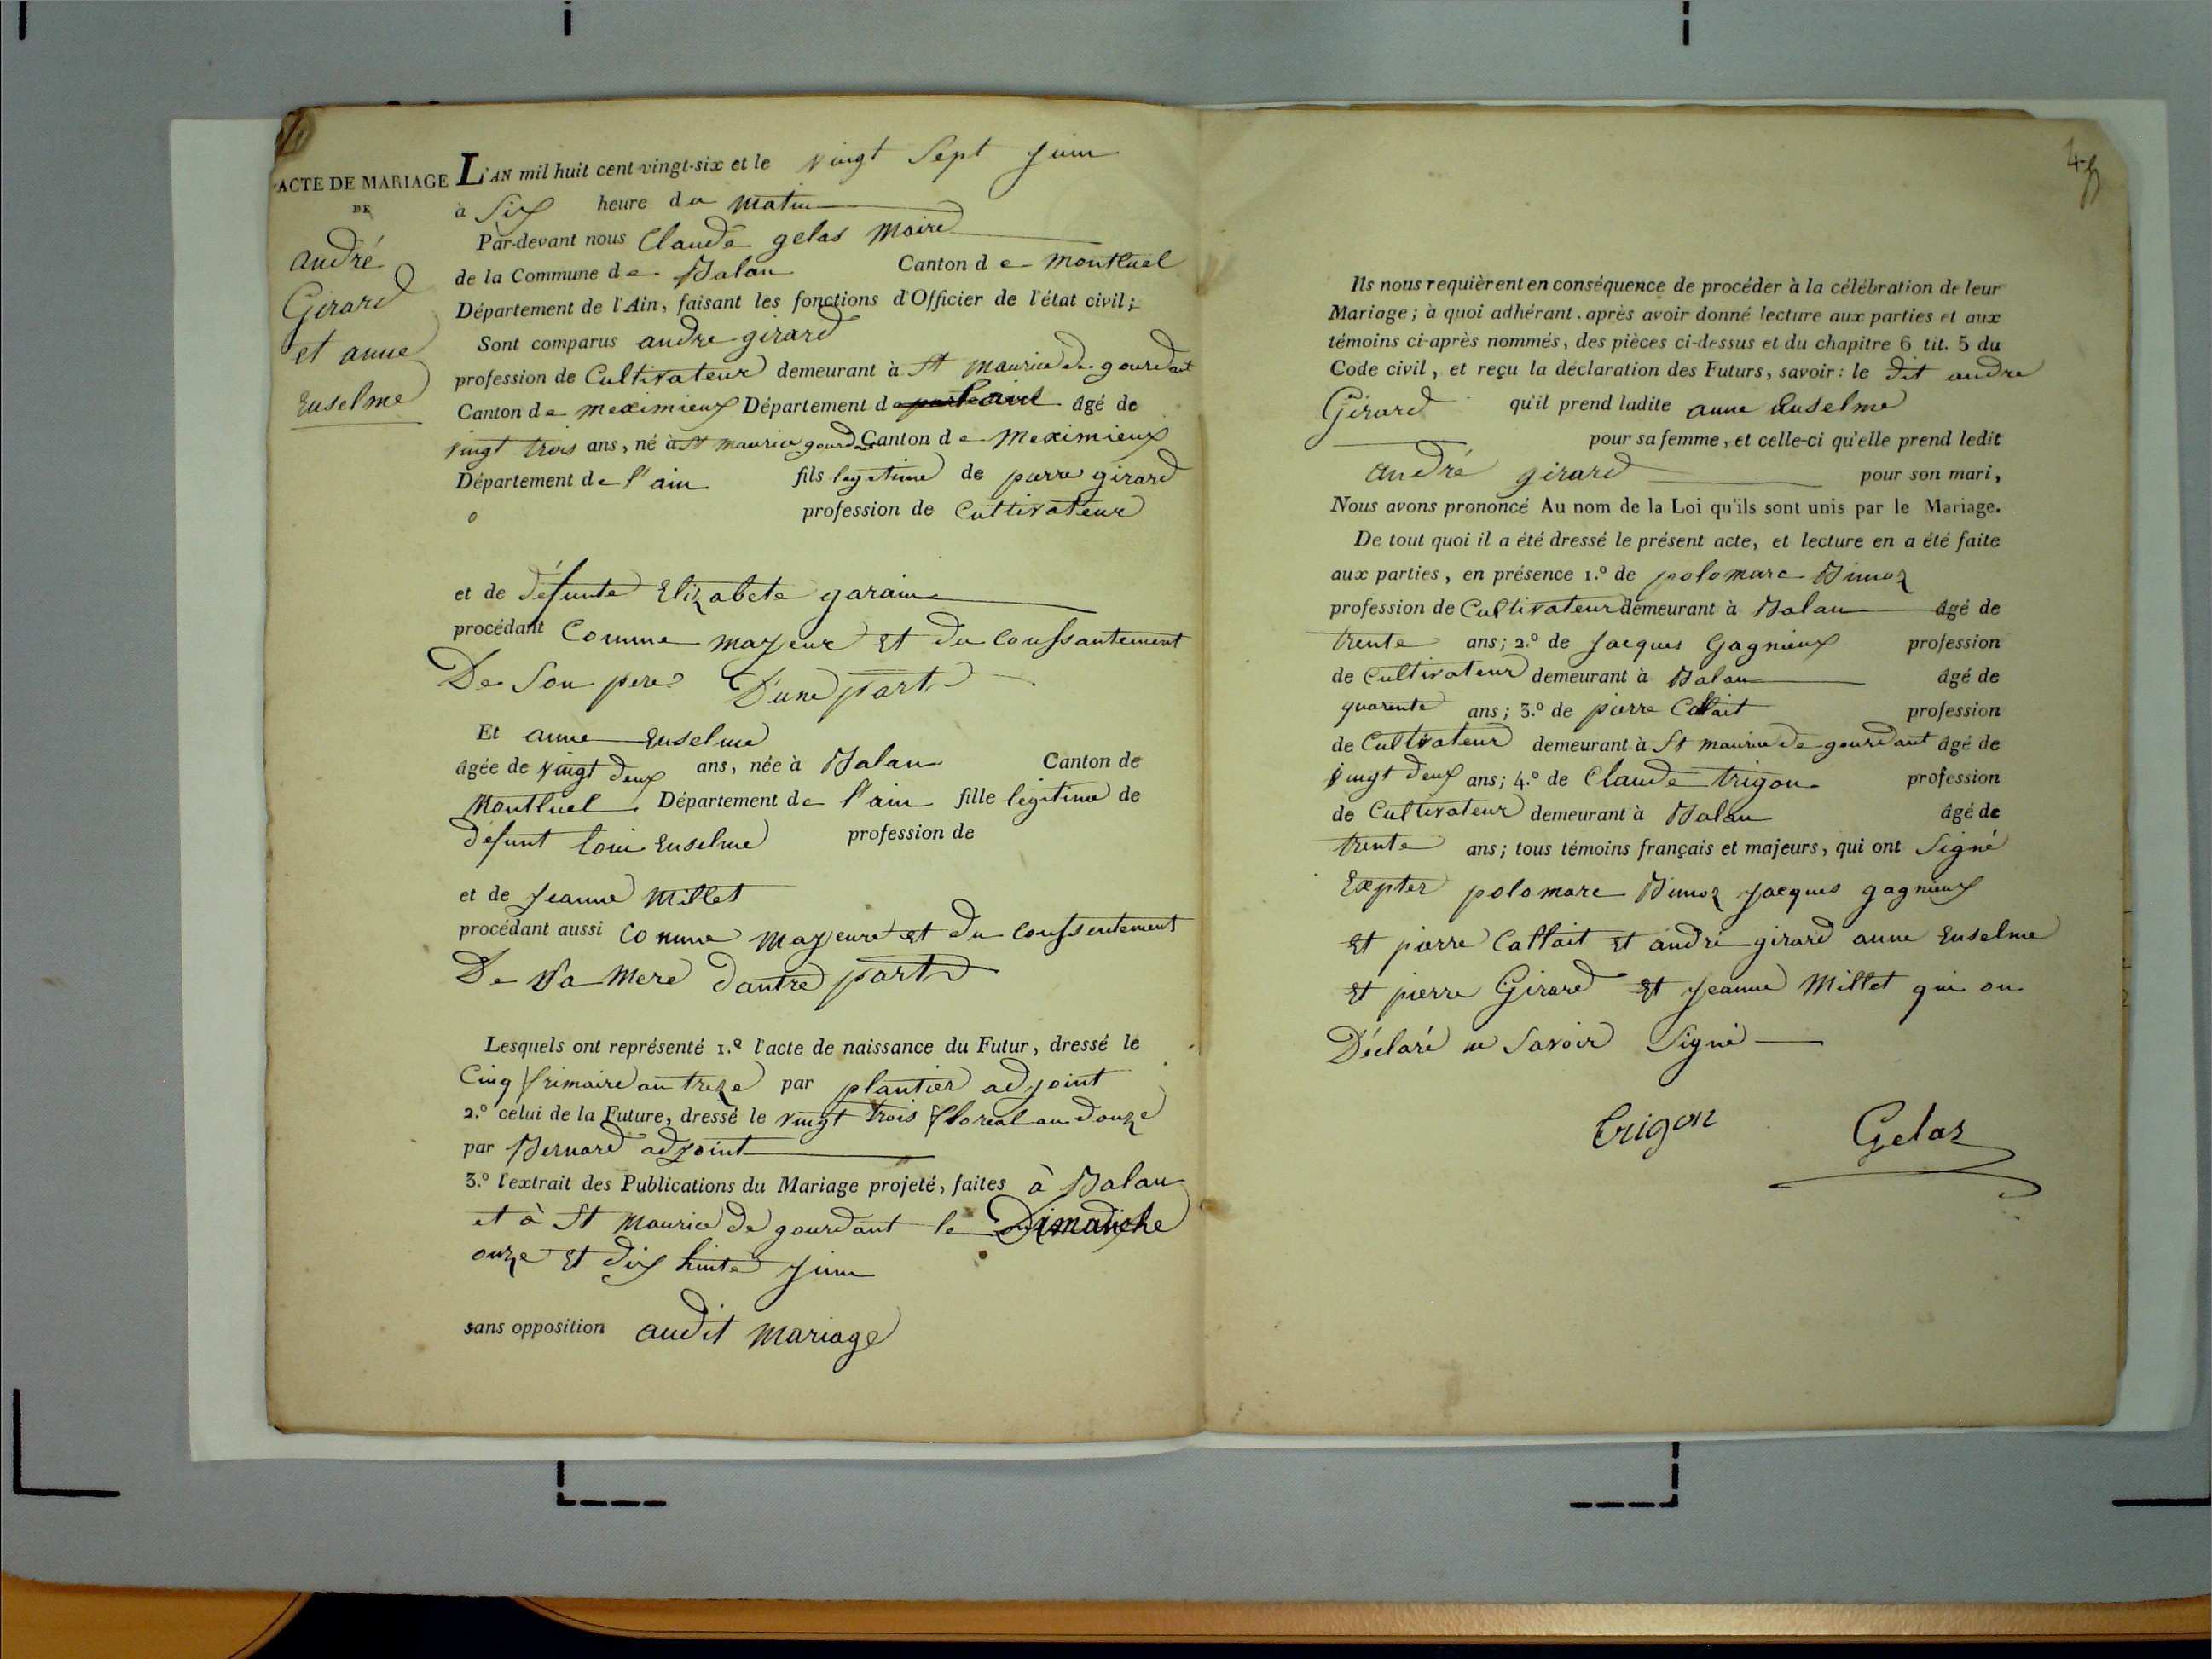 ACTE DE MARIAGE
DE
andré
Girard
et anne
Enselme
L'AN mil huit cent vingt-six et le vingt Sept Juin
à Six heure du matin
Par-devant nous Claude gelas Maire
de la Commune de Balan Canton de Montluel
Département de l'Ain, faisant les fonctions d'Officier de l'état civil;
Sont comparus andre girard
profession de Cultivateur demeurant à St maurice de gourdant
Canton de meximieux Département de âgé de
vingt trois ans, né à St maurice gourdant Canton de Meximieux
Département de l'ain fils legitime de pierre girard
profession de Cultivateur
et de défunte Elizabete garaine
procédant Comme mayeur et du Conssantement
De Son pere D'une part
Et anne Enselme
âgée de vingt deux ans, née à Balan Canton de
Montluel Département de l'ain fille légitime de
défunt loui Enselme profession de
et de Jeanne Millet
procédant aussi Comme mayeure et du Conssentement
De Sa Mere dautre part
Lesquels ont représenté 1.º l'acte de naissance du Futur, dressé le
Cinq frimaire an treze par plantier adjoint
2.º celui de la Future, dressé le vingt trois floreal an douze
par Bernard adjoint
3.º l'extrait des Publications du Mariage projeté, faites à Balan
et à St Maurice de gourdant le Dimanche
onze et dix huite Juin
sans opposition audit Mariage
Ils nous requièrent en conséquence de procéder à la célébration de leur
Mariage; à quoi adhérant, après avoir donné lecture aux parties et aux
témoins ci-après nommés, des pièces ci-dessus et du chapitre 6 tit. 5 du
Code civil, et reçu la déclaration des Futurs, savoir: le dit andre
Girard qu'il prend ladite anne Enselme
pour sa femme, et celle-ci qu'elle prend ledit
andré girard pour son mari,
Nous avons prononcé Au nom de la Loi qu'ils sont unis par le Mariage.
De tout quoi il a été dressé le présent acte, et lecture en a été faite
aux parties, en présence 1.º de polomarc Bimoz
profession de Cultivateur demeurant à Balan âgé de
trente ans; 2.º de Jacques Gagnieux profession
de Cultivateur demeurant à Balan âgé de
quarente ans; 3.º de pierre Cattait profession
de Cultivateur demeurant à St maurice de gourdant âgé de
vingt deux ans; 4.º de Claude trigon profession
de Cultivateur demeurant à Balan âgé de
trente ans; tous témoins français et majeurs, qui ont Signé
Exepter polomarc Bimoz Jacques gagnieux
et pierre Cattait et andré girard anne Enselme
et pierre Girard et Jeanne Millet qui on
Déclaré ne Savoir Signé
trigon Gelas